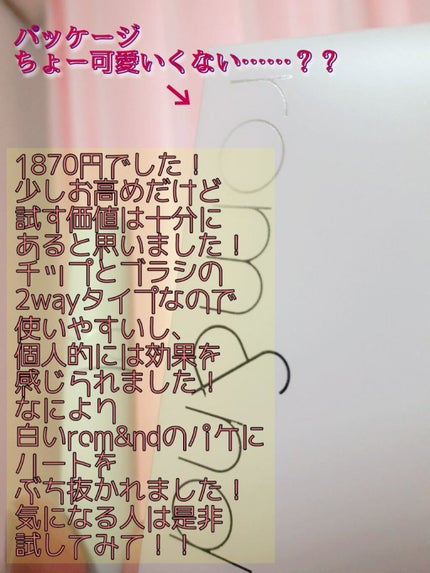 パッケージ
ちょー可愛いくない……？？
rom&nd
1870円でした！
少しお高めだけど
試す価値は十分に
あると思いました！
チップとブラシの
2wayタイプなので
使いやすいし、
個人的には効果を
感じられました！
なにより
白いrom&ndのパケに
ハートを
ぶち抜かれました！
気になる人は是非
試してみて！！